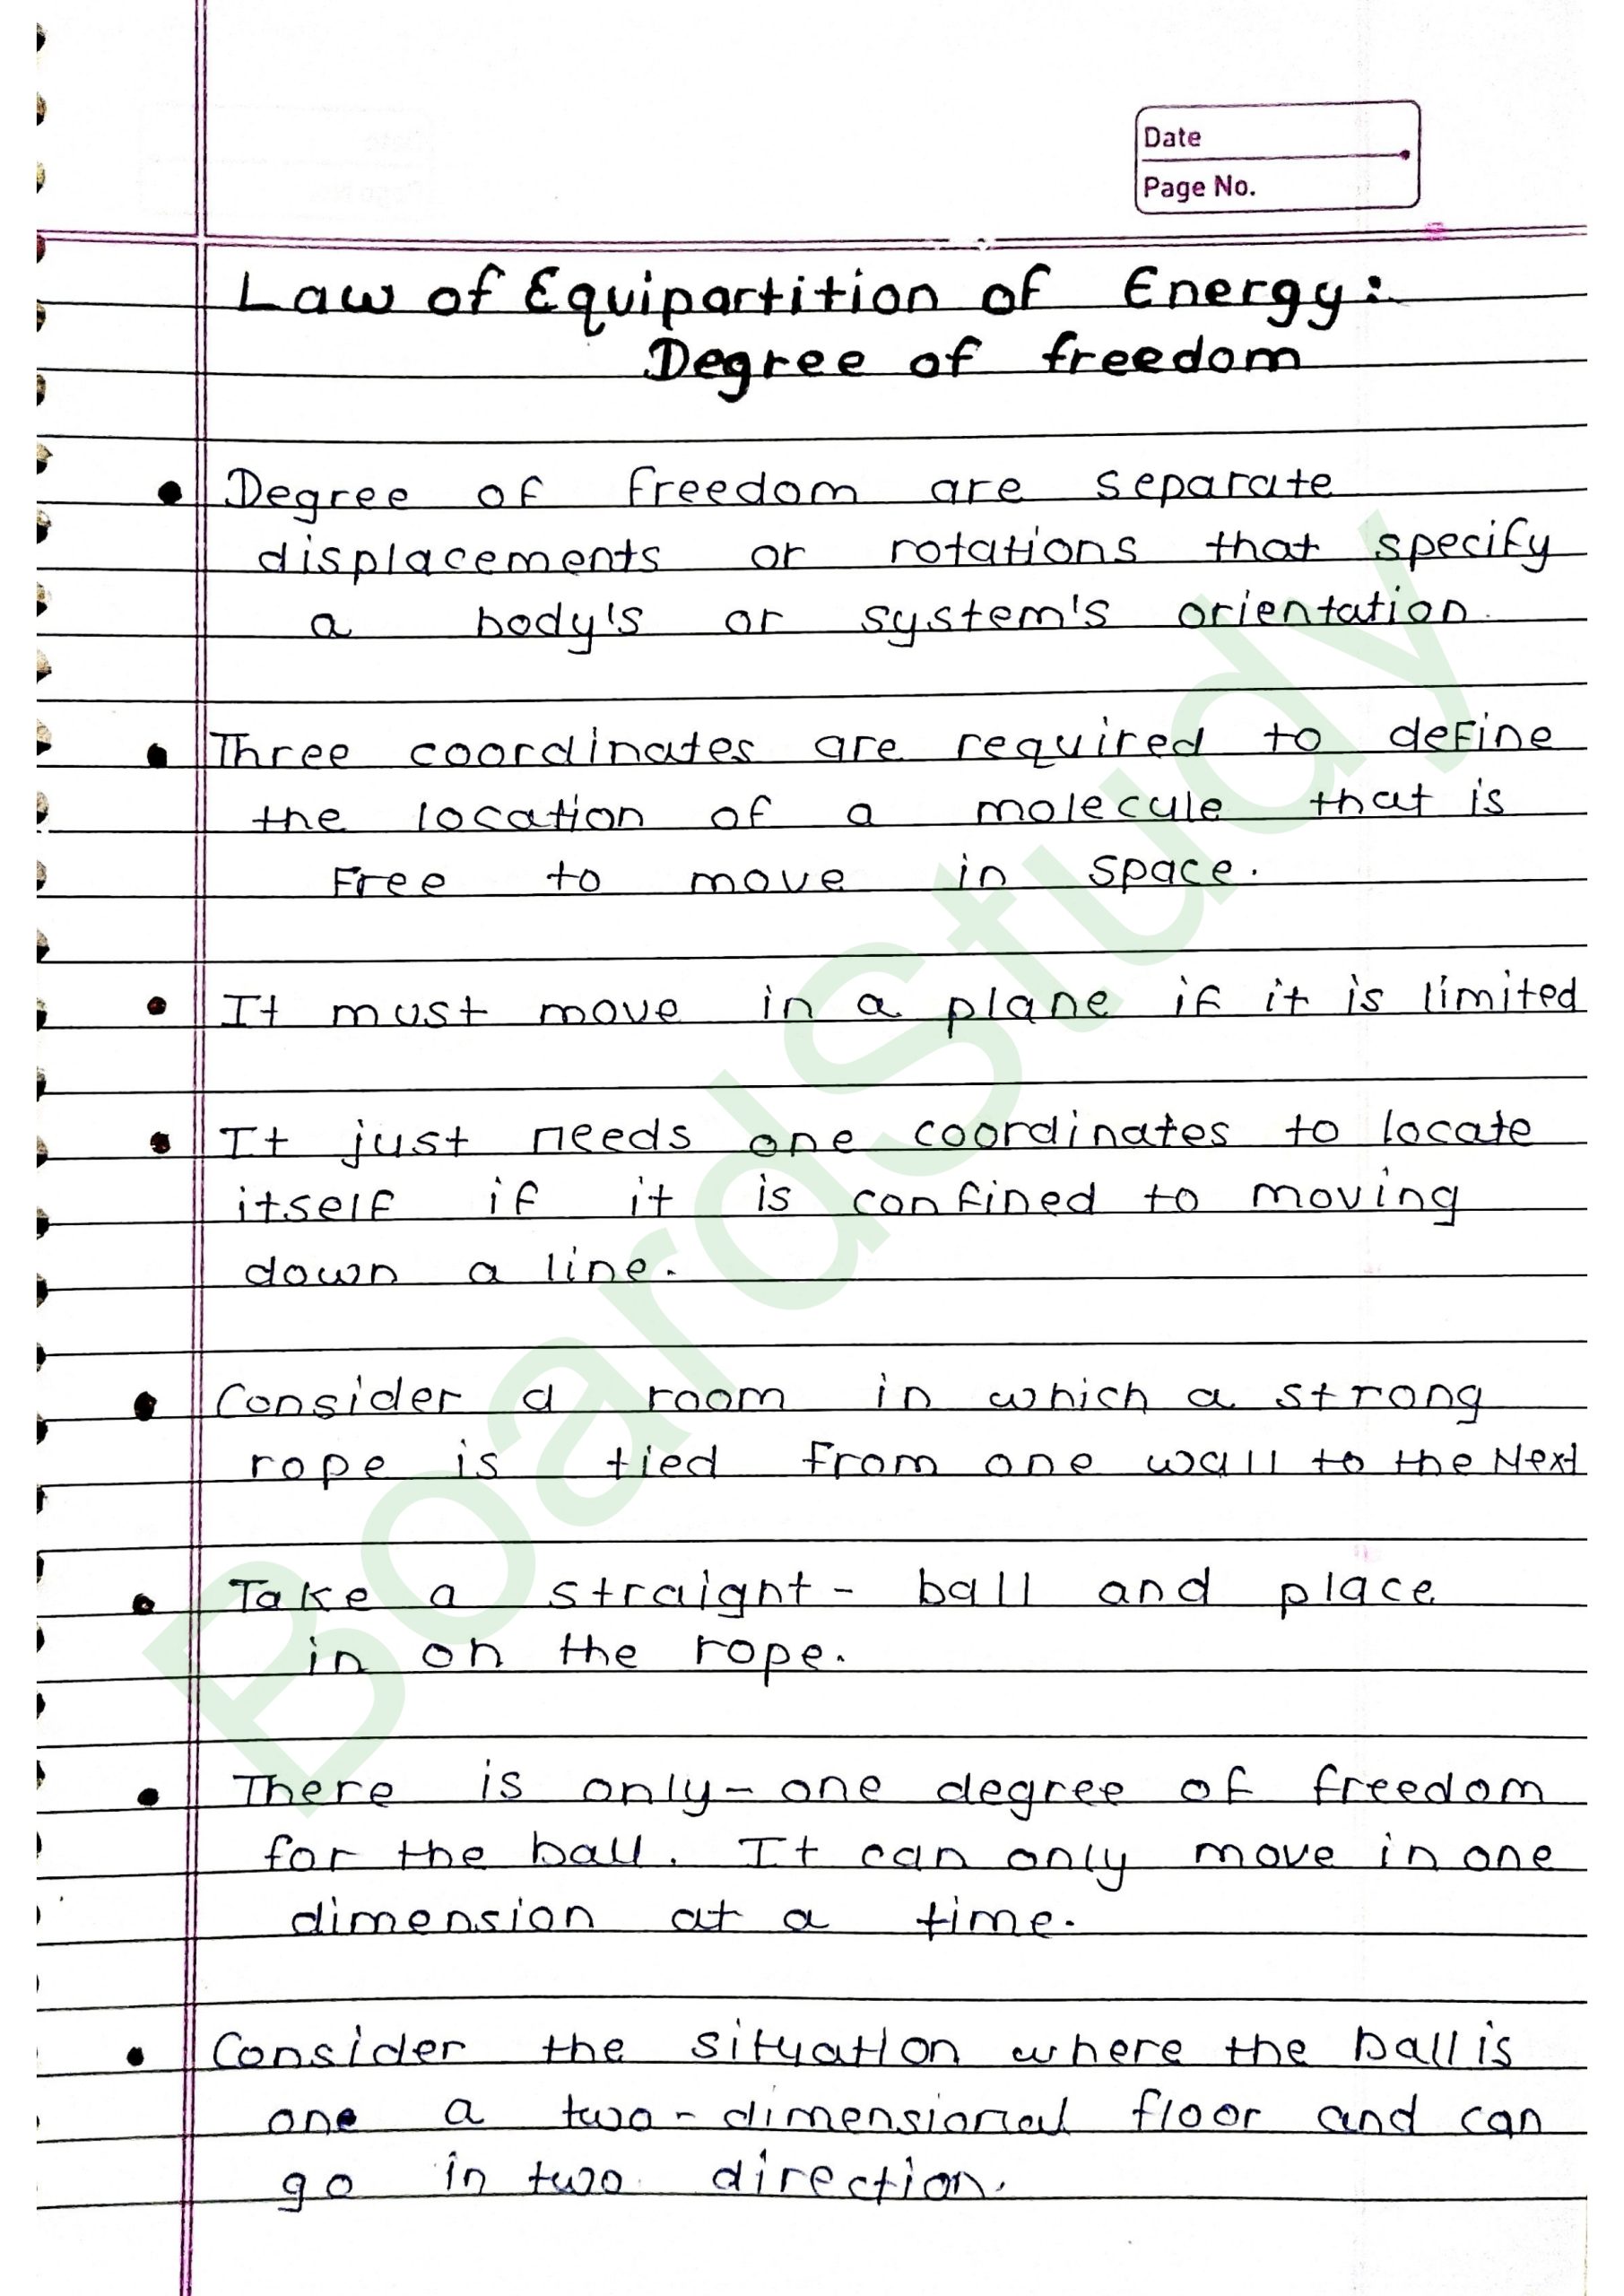 Date
Page No.
Law of Equipartition of Energy:
Degree of freedom
• Degree of freedom are separate
displacements or rotations that specify
a body's or system's orientation.
• Three coordinates are required to define
the location of a molecule that is
Free to move in space.
• It must move in a plane if it is limited
• It just needs one coordinates to locate
itself if it is confined to moving
down a line.
• Consider a room in which a strong
rope is tied from one wall to the Next
• Take a straight - ball and place
in on the rope.
• There is only - one degree of freedom
for the ball. It can only move in one
dimension at a time.
• Consider the situation where the ball is
one a two - dimensional floor and can
go in two direction.
BoardStudy